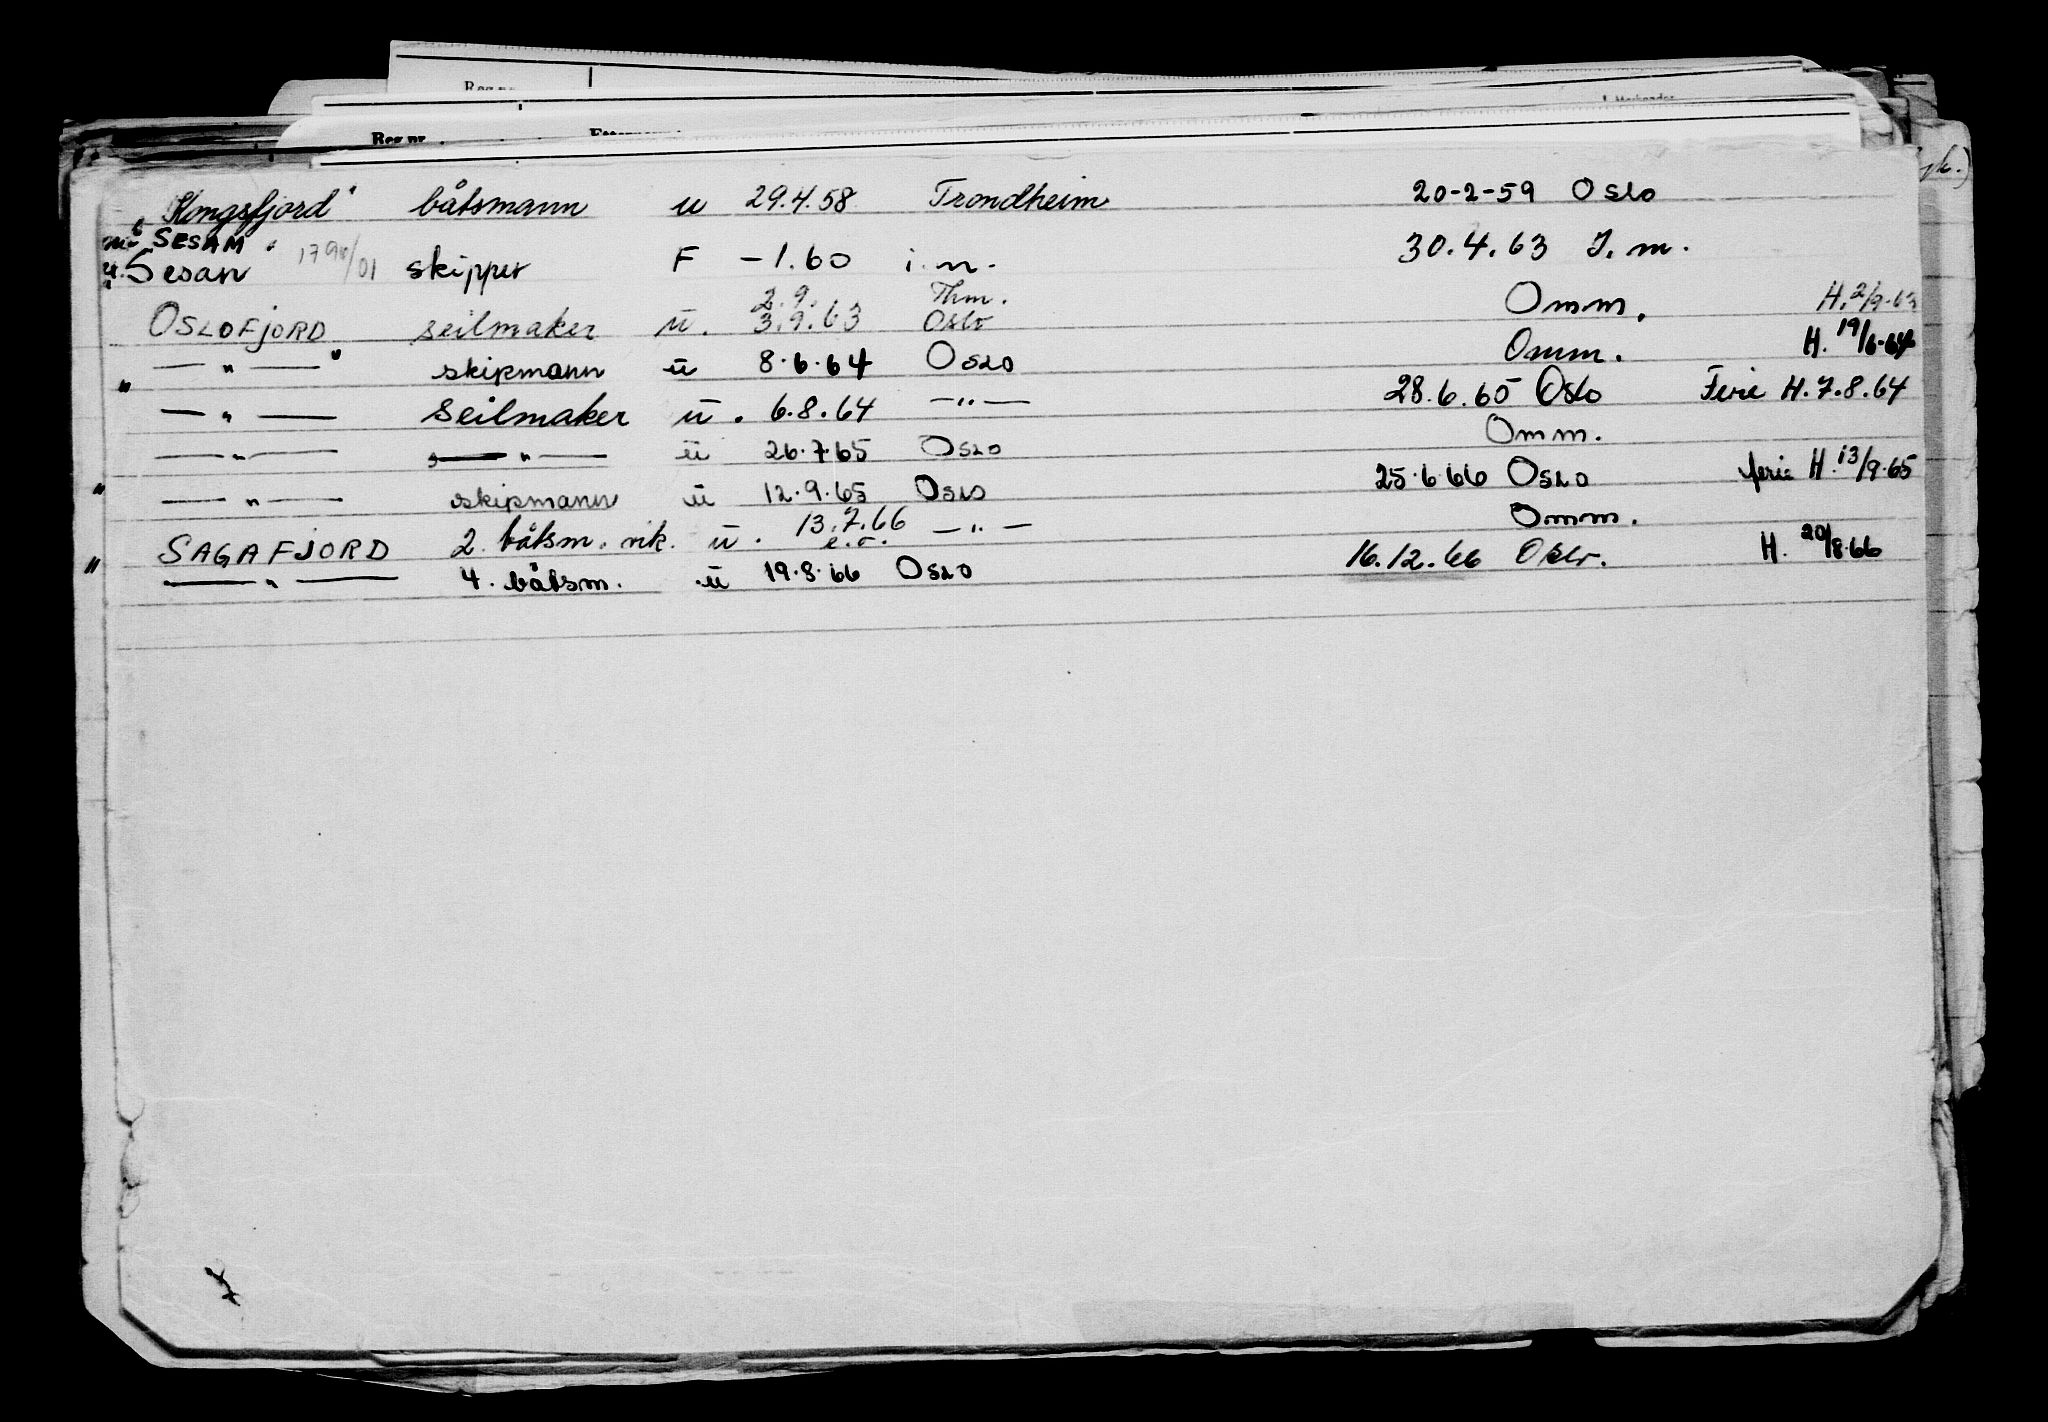 Reg.nr.
"Kongsfjord" båtsmann u 29.4.58 Trondheim 20-2-59 Oslo
"SESAM"
Sesan 1790/01 skipper F -1.60 i.n. 30.4.63 I.m.
2.9. Thm.
OSLOFJORD seilmaker ü. 3.9.63 Oslo Omm. H. 2/9-63
— " — " skipmann ü 8.6.64 OSLO Omm. H. 19/6-64
" — " — seilmaker ü. 6.8.64 — " — 28.6.65 Oslo Ferie H. 7.8.64
— " — — " — ü 26.7.65 OSLO Omm.
" — " — skipmann ü 12.9.65 OSLO 25.6.66 OSLO ferie H. 13/9.65
SAGAFJORD 2. båtsm. vik. ü. 13.7.66 — " — Omm.
e.o.
" — " — 4. båtsm. ü 19.8.66 OSLO 16.12.66 Oslo. H. 20/8.66